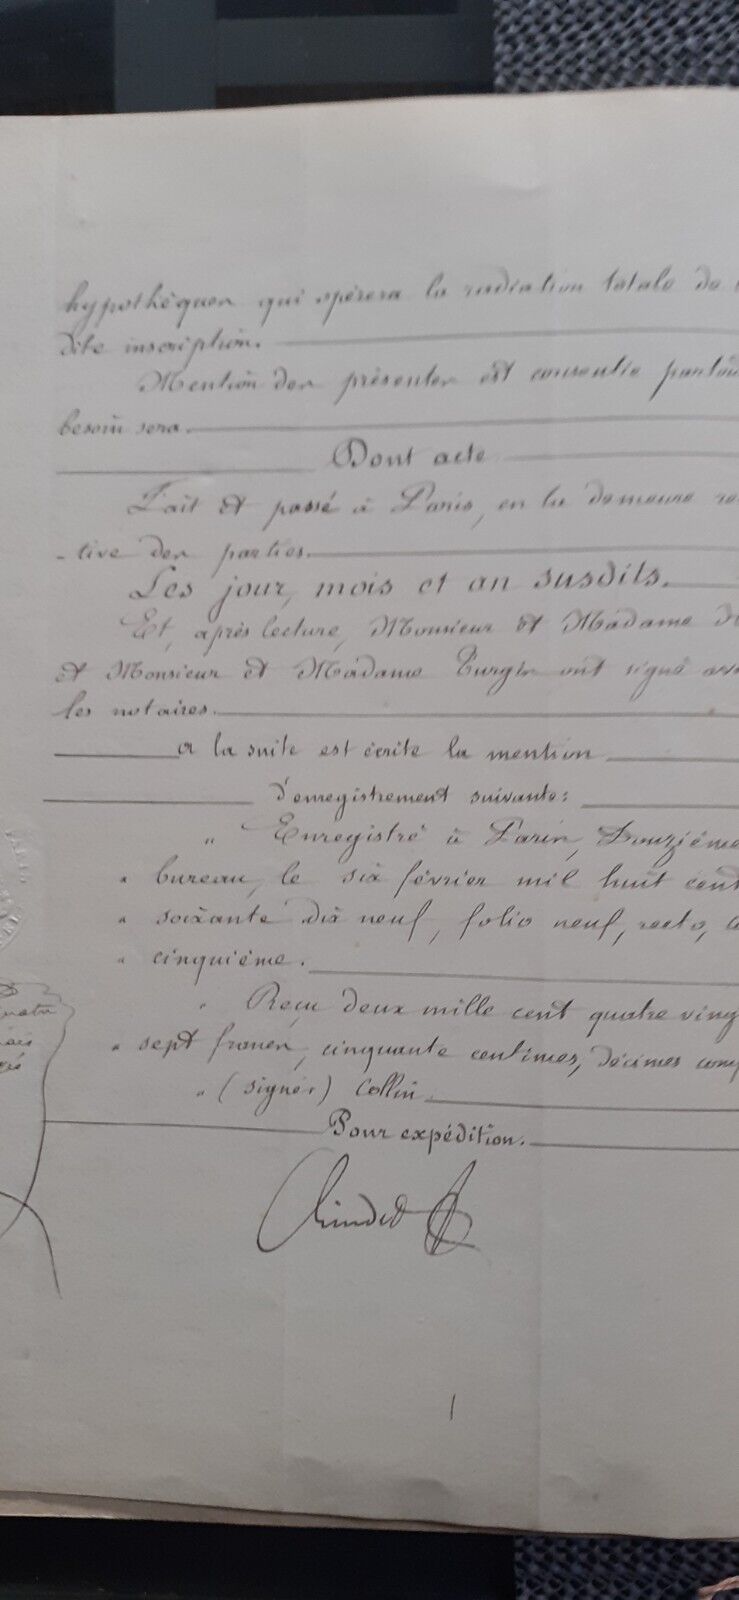 hypothèques qui opérera la radiation totale de
dite inscription.
Mention des présentes est consentie partou
besoin sera.
Dont acte
Fait et passé à Paris, en la demeure res
-tive des parties.
Les jour, mois et an susdits.
Et, après lecture, Monsieur et Madame
et Monsieur et Madame Turgis ont signé avec
les notaires.
a la suite est écrite la mention
d'enregistrement suivante:
" Enregistré à Paris, Douzième
" bureau, le six février mil huit cent
" soixante dix neuf, folio neuf, recto, c
" cinquième.
" Reçu deux mille cent quatre ving
" sept francs, cinquante centimes, décimes comp
" (signé) Collin
Pour expédition.